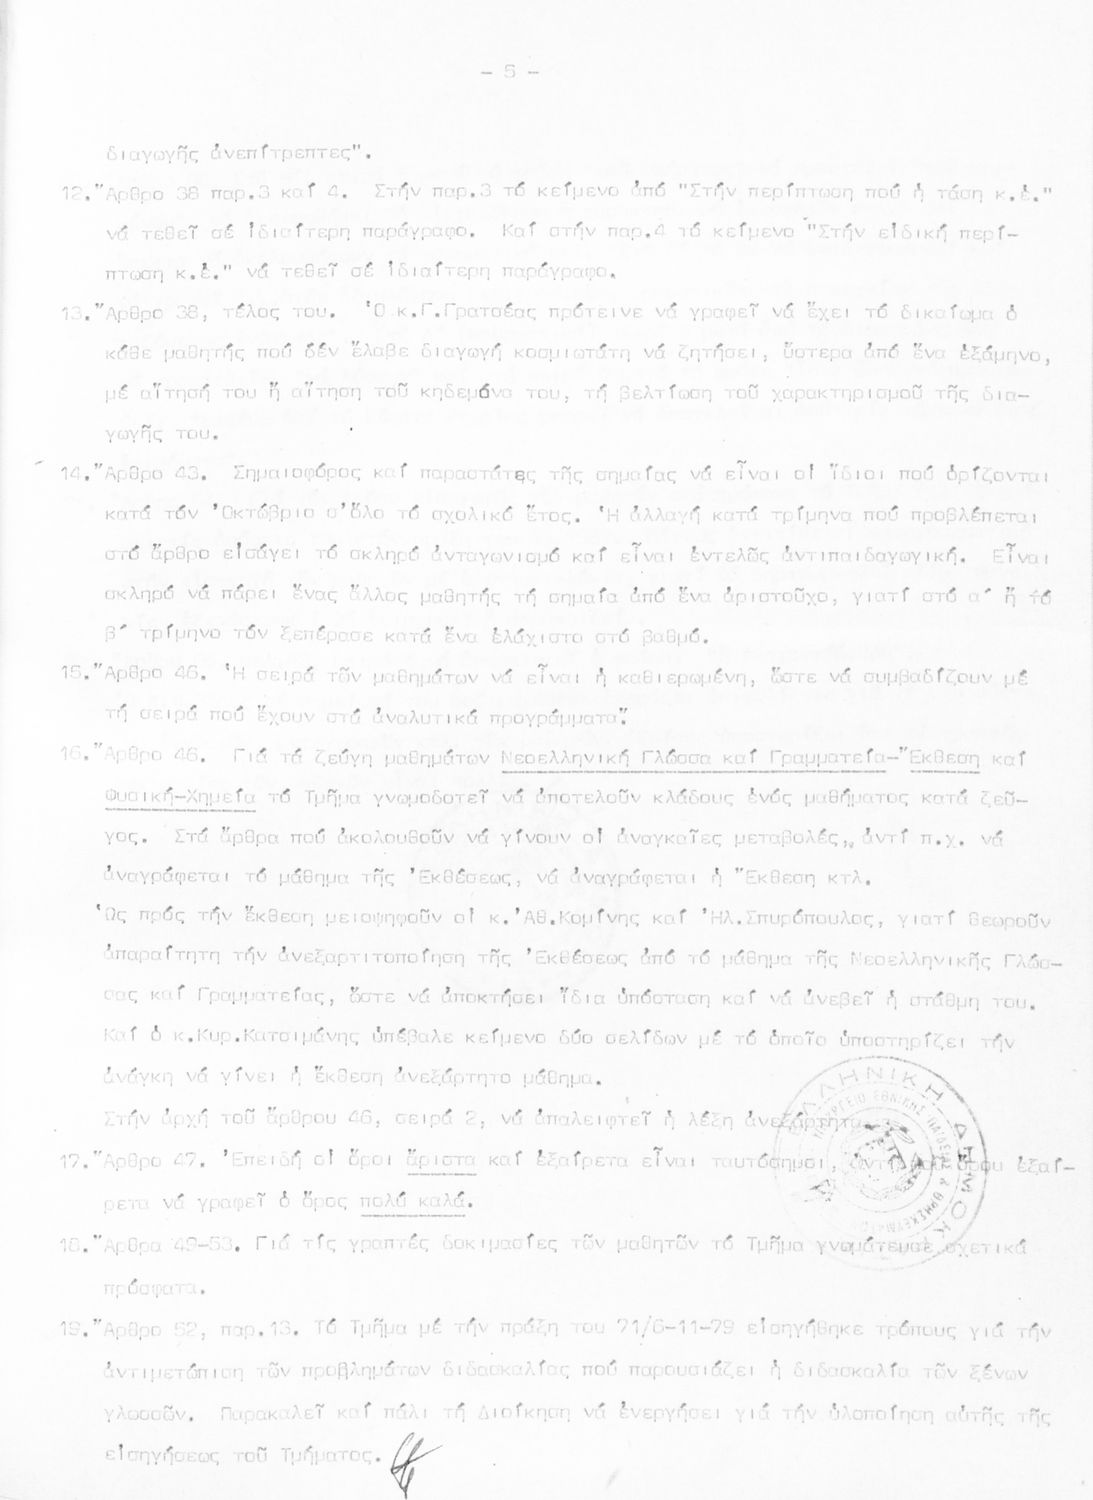 - 5 -
διαγωγῆς ἀνεπίτρεπτες".
12. Ἄρθρο 38 παρ.3 καί 4. Στήν παρ.3 τό κείμενο ἀπό "Στήν περίπτωση πού ἡ τάση κ.ἑ."
νά τεθεῖ σέ ἰδιαίτερη παράγραφο. Καί στήν παρ.4 τό κείμενο "Στήν εἰδική περί-
πτωση κ.ἑ." νά τεθεῖ σέ ἰδιαίτερη παράγραφο.
13. Ἄρθρο 38, τέλος του. Ὁ κ.Γ.Γρατσέας πρότεινε νά γραφεῖ νά ἔχει τό δικαίωμα ὁ
κάθε μαθητής πού δέν ἔλαβε διαγωγή κοσμιωτάτη νά ζητήσει, ὕστερα ἀπό ἕνα ἑξάμηνο,
μέ αἴτησή του ἤ αἴτηση τοῦ κηδεμόνα του, τή βελτίωση τοῦ χαρακτηρισμοῦ τῆς δια-
γωγῆς του.
14. Ἄρθρο 43. Σημαιοφόρος καί παραστάτες τῆς σημαίας νά εἶναι οἱ ἴδιοι πού ὁρίζονται
κατά τόν Ὀκτώβριο σ'ὅλο τό σχολικό ἔτος. Ἡ ἀλλαγή κατά τρίμηνα πού προβλέπεται
στό ἄρθρο εἰσάγει τό σκληρό ἀνταγωνισμό καί εἶναι ἐντελῶς ἀντιπαιδαγωγική. Εἶναι
σκληρό νά πάρει ἕνας ἄλλος μαθητής τή σημαία ἀπό ἕνα ἀριστοῦχο, γιατί στό α΄ ἤ τό
β΄ τρίμηνο τόν ξεπέρασε κατά ἕνα ἐλάχιστο στό βαθμό.
15. Ἄρθρο 46. Ἡ σειρά τῶν μαθημάτων νά εἶναι ἡ καθιερωμένη, ὥστε νά συμβαδίζουν μέ
τή σειρά πού ἔχουν στά ἀναλυτικά προγράμματα".
16. Ἄρθρο 46. Γιά τά ζεύγη μαθημάτων Νεοελληνική Γλώσσα καί Γραμματεία-Ἔκθεση καί
Φυσική-Χημεία τό Τμῆμα γνωμοδοτεῖ νά ἀποτελοῦν κλάδους ἑνός μαθήματος κατά ζεῦ-
γος. Στά ἄρθρα πού ἀκολουθοῦν νά γίνουν οἱ ἀναγκαῖες μεταβολές, ἀντί π.χ. νά
ἀναγράφεται τό μάθημα τῆς Ἐκθέσεως, νά ἀναγράφεται ἡ Ἔκθεση κτλ.
Ὡς πρός τήν ἔκθεση μειοψηφοῦν οἱ κ.Ἀθ.Κομίνης καί Ἠλ.Σπυρόπουλος, γιατί θεωροῦν
ἀπαραίτητη τήν ἀνεξαρτιτοποίηση τῆς Ἐκθέσεως ἀπό τό μάθημα τῆς Νεοελληνικῆς Γλώσ-
σας καί Γραμματείας, ὥστε νά ἀποκτήσει ἴδια ὑπόσταση καί νά ἀνεβεῖ ἡ στάθμη του.
Καί ὁ κ.Κυρ.Κατσιμάνης ὑπέβαλε κείμενο δύο σελίδων μέ τό ὁποῖο ὑποστηρίζει τήν
ἀνάγκη νά γίνει ἡ ἔκθεση ἀνεξάρτητο μάθημα.
Στήν ἀρχή τοῦ ἄρθρου 46, σειρά 2, νά ἀπαλειφτεῖ ἡ λέξη ἀνεξάρτητα.
17. Ἄρθρο 47. Ἐπειδή οἱ ὅροι ἄριστα καί ἐξαίρετα εἶναι ταυτόσημοι, ἀντί τοῦ ὅρου ἐξαί-
ρετα νά γραφεῖ ὁ ὅρος πολύ καλά.
18. Ἄρθρα 49-53. Γιά τίς γραπτές δοκιμασίες τῶν μαθητῶν τό Τμῆμα γνωμάτευσε σχετικά
πρόσφατα.
19. Ἄρθρο 52, παρ.13. Τό Τμῆμα μέ τήν πράξη του 71/6-11-79 εἰσηγήθηκε τρόπους γιά τήν
ἀντιμετώπιση τῶν προβλημάτων διδασκαλίας πού παρουσιάζει ἡ διδασκαλία τῶν ξένων
γλωσσῶν. Παρακαλεῖ καί πάλι τή Διοίκηση νά ἐνεργήσει γιά τήν ὑλοποίηση αὐτῆς τῆς
εἰσηγήσεως τοῦ Τμήματος.
ΕΛΛΗΝΙΚΗ ΔΗΜΟΚ
ΥΠΟΥΡΓΕΙΟ ΕΘΝΙΚΗΣ ΠΑΙΔΕΙΑΣ & ΘΡΗΣΚΕΥΜΑΤΩΝ